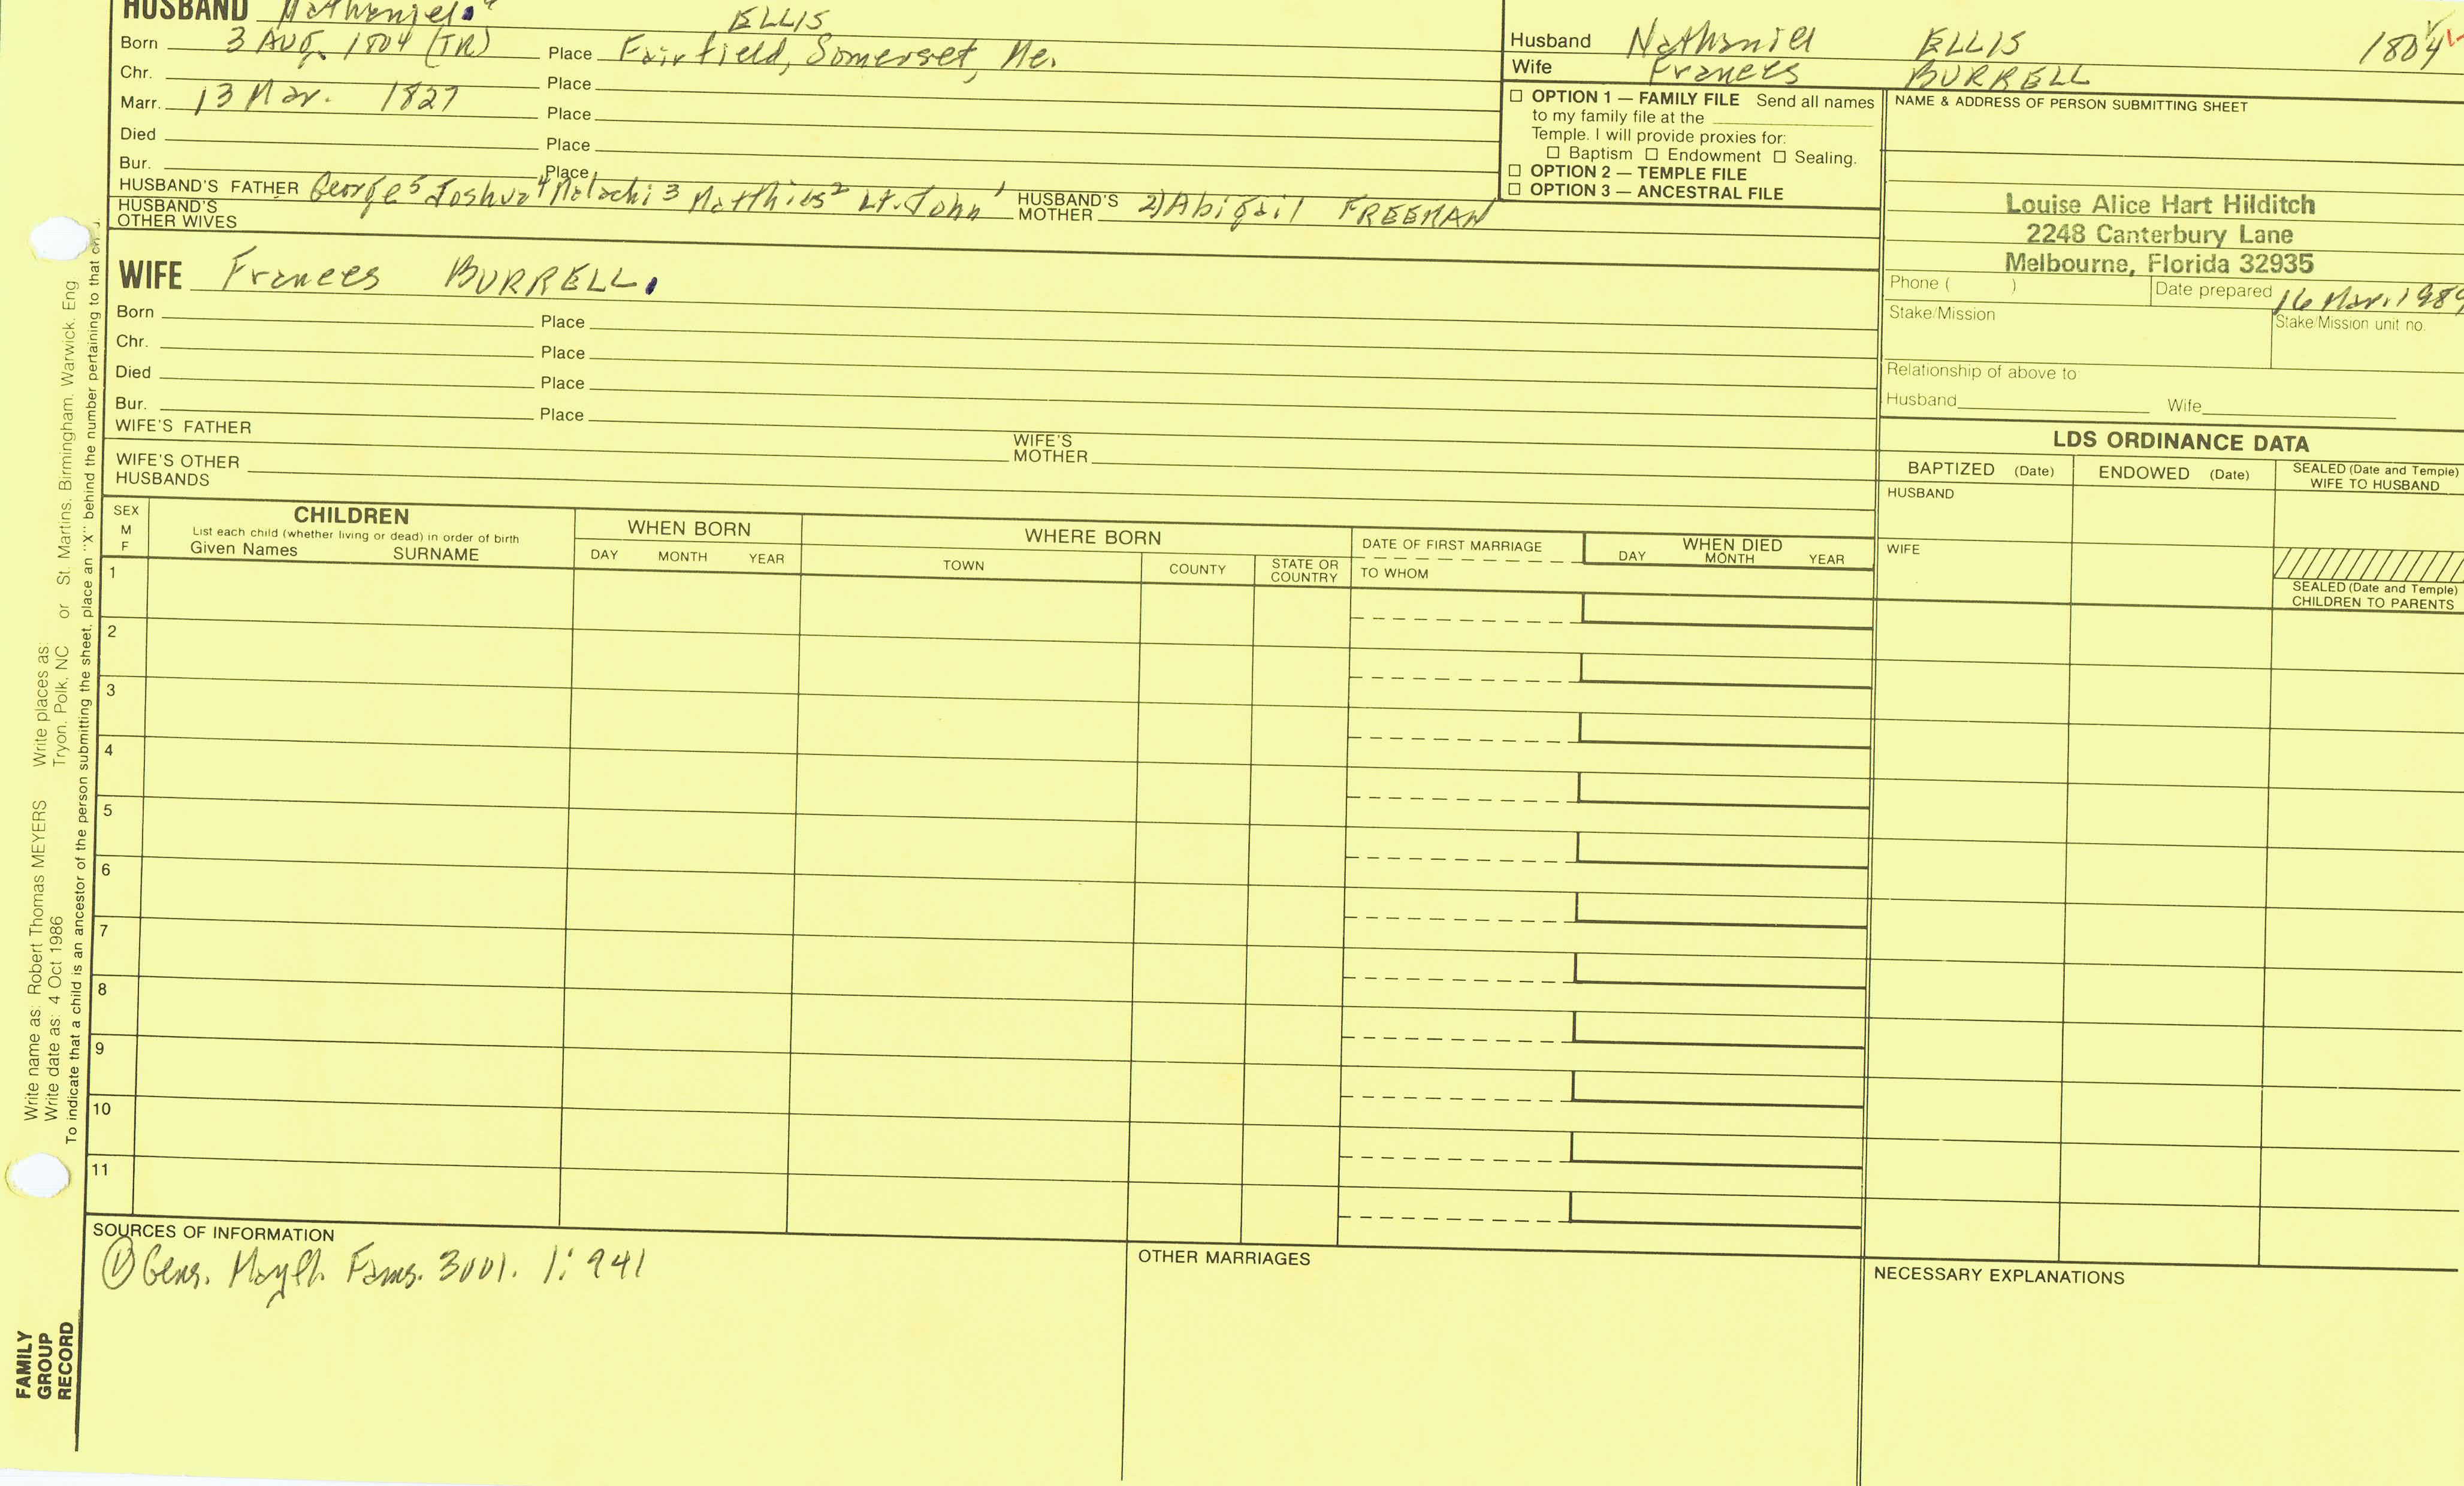 HUSBAND Nathaniel ELLIS
Born 3 AUG. 1804 (TR) Place Fairfield, Somerset, Me.
Chr. Place
Marr. 13 Mar. 1827 Place
Died Place
Bur. Place
HUSBAND'S FATHER George5 Joshua4 Malachi3 Matthias2 Lt. John1 HUSBAND'S MOTHER 2) Abigail FREEMAN
HUSBAND'S OTHER WIVES
WIFE Frances BURRELL.
Born Place
Chr. Place
Died Place
Bur. Place
WIFE'S FATHER WIFE'S MOTHER
WIFE'S OTHER HUSBANDS
Husband Nathaniel ELLIS 1804
Wife Frances BURRELL
☐ OPTION 1 — FAMILY FILE Send all names
to my family file at the
Temple. I will provide proxies for:
☐ Baptism ☐ Endowment ☐ Sealing.
☐ OPTION 2 — TEMPLE FILE
☐ OPTION 3 — ANCESTRAL FILE
NAME & ADDRESS OF PERSON SUBMITTING SHEET
Louise Alice Hart Hilditch
2248 Canterbury Lane
Melbourne, Florida 32935
Phone ( ) Date prepared 16 Mar. 1989
Stake/Mission Stake/Mission unit no.
Relationship of above to
Husband Wife
LDS ORDINANCE DATA
BAPTIZED (Date) ENDOWED (Date) SEALED (Date and Temple) WIFE TO HUSBAND
HUSBAND
WIFE
SEALED (Date and Temple)
CHILDREN TO PARENTS
SEX M F
CHILDREN
List each child (whether living or dead) in order of birth
Given Names SURNAME
WHEN BORN
DAY MONTH YEAR
WHERE BORN
TOWN COUNTY STATE OR COUNTRY
DATE OF FIRST MARRIAGE
TO WHOM
WHEN DIED
DAY MONTH YEAR
1
2
3
4
5
6
7
8
9
10
11
SOURCES OF INFORMATION
① Gens. Mayfl. Fams. 3001. 1:941
OTHER MARRIAGES
NECESSARY EXPLANATIONS
Write name as: Robert Thomas MEYERS Write places as:
Write date as: 4 Oct 1986 Tryon, Polk, NC or St. Martins, Birmingham, Warwick, Eng
To indicate that a child is an ancestor of the person submitting the sheet, place an "X" behind the number pertaining to that
FAMILY
GROUP
RECORD